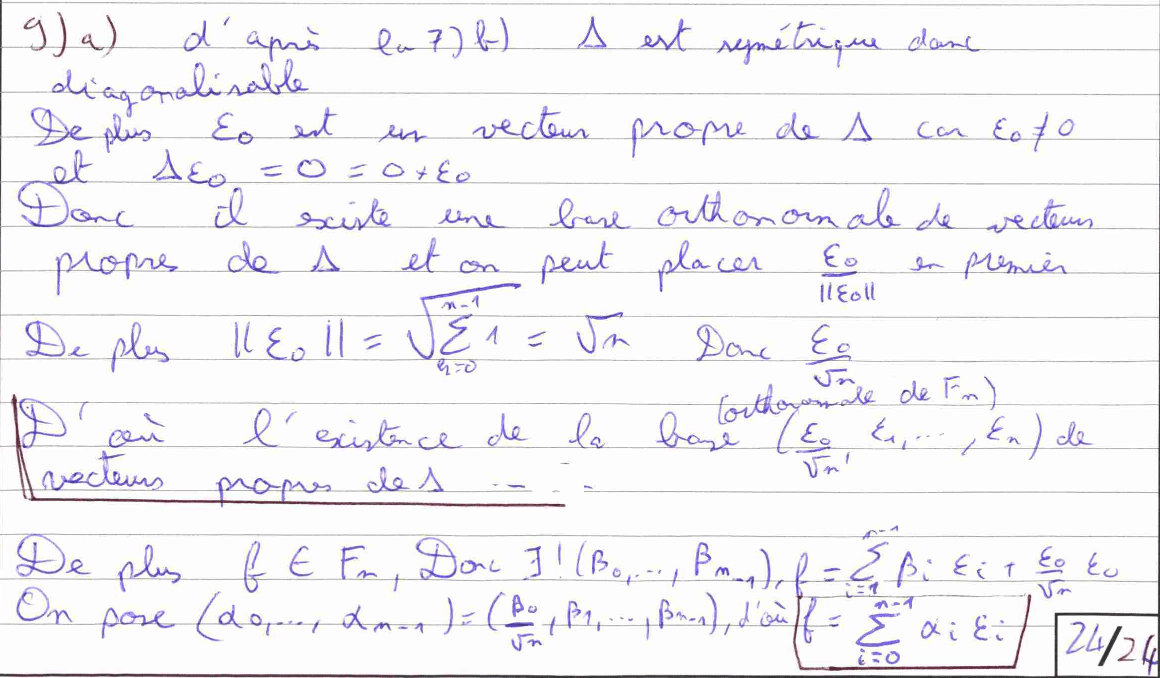 9) a) d'après la 7) b) Δ est symétrique donc
diagonalisable
De plus ε₀ est un vecteur propre de Δ car ε₀ ≠ 0
et Δε₀ = 0 = 0 * ε₀
Donc il existe une base orthonormale de vecteurs
propres de Δ et on peut placer ε₀/||ε₀|| en premier
De plus ||ε₀|| = √(∑_{k=0}^{n-1} 1) = √n Donc ε₀/√n
(orthonormale de Fₙ)
D'où l'existence de la base (ε₀/√n, ε₁, ..., εₙ) de
vecteurs propres de Δ ....
De plus f ∈ Fₙ, Donc ∃!(β₀, ..., βₙ₋₁), f = ∑_{i=1}^{n-1} βᵢ εᵢ + ε₀/√n ε₀
On pose (α₀, ..., αₙ₋₁) = (β₀/√n, β₁, ..., βₙ₋₁), d'où f = ∑_{i=0}^{n-1} αᵢ εᵢ
24/24